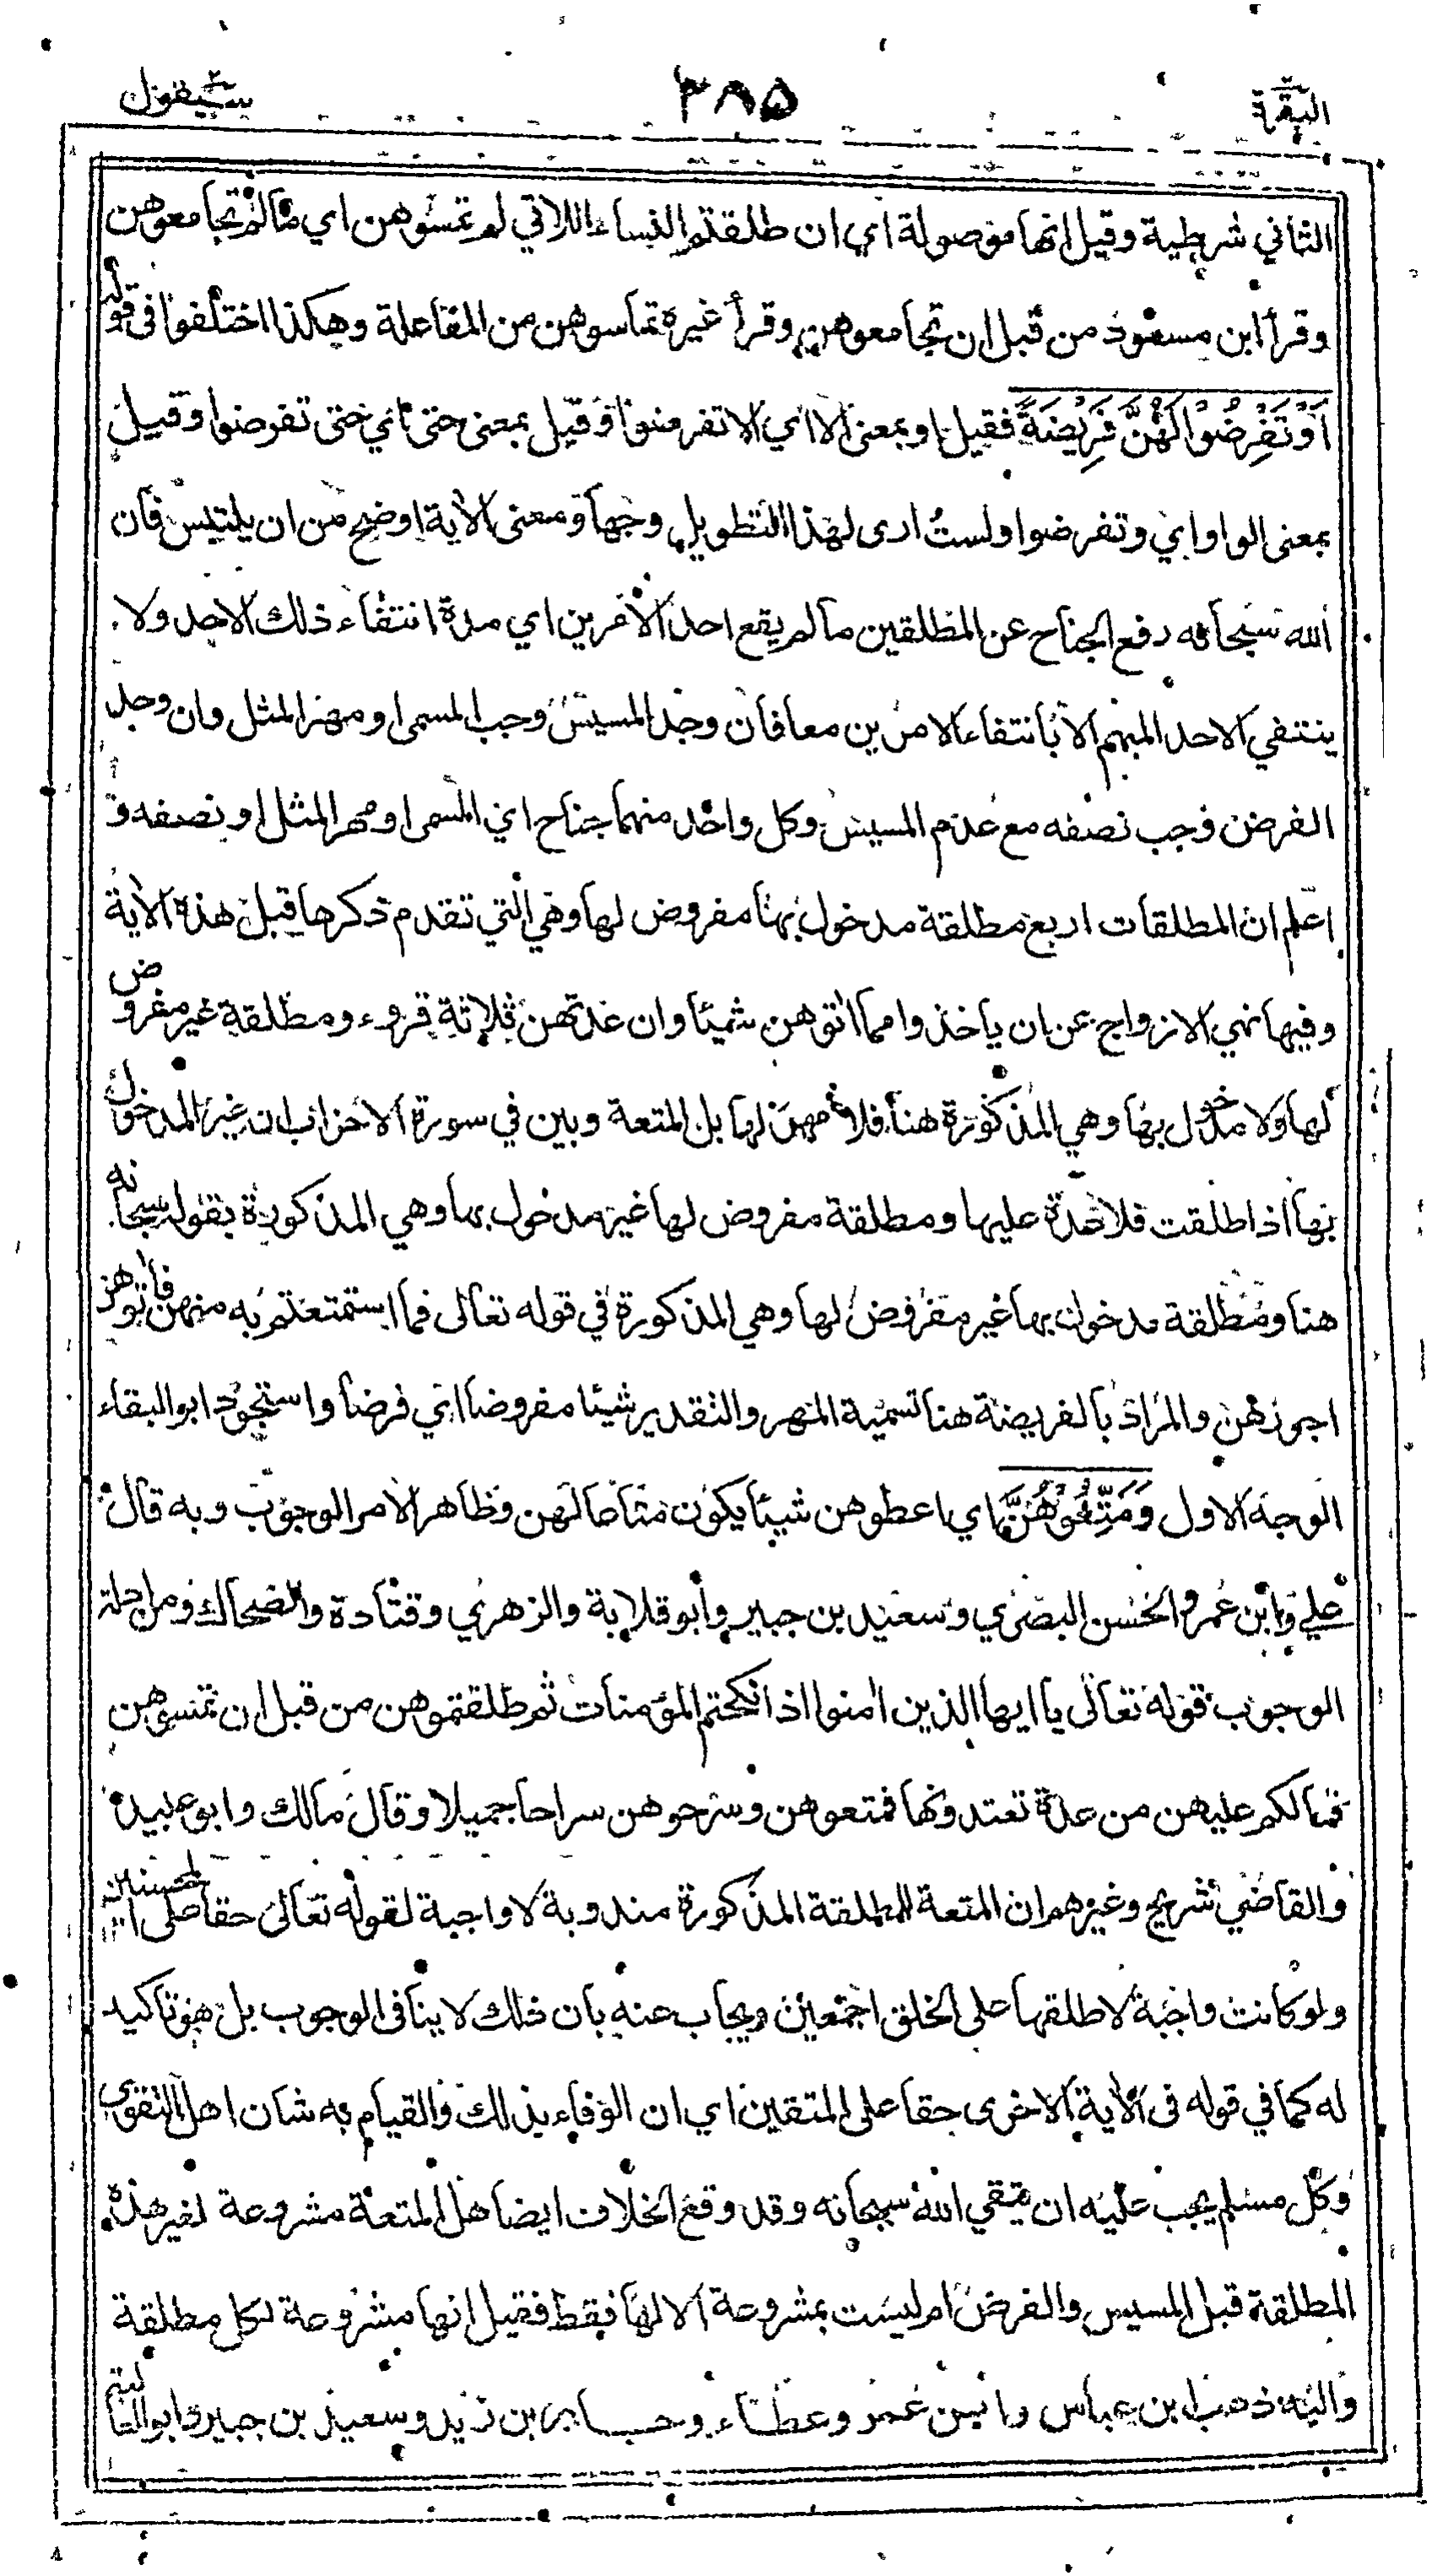 البقرة ٣٨٥ سيقول٢
الثاني شرطية وقيل انها موصولة اي ان طلقتم النساء اللاتي لم تمسوهن اي مالم تجامعوهن
وقرأ ابن مسعود من قبل ان تجامعوهن وقرأ غيره تماسوهن من المفاعلة وهكذا اختلفوا في قوله
اَوْ تَفْرِضُوْا لَهُنَّ فَرِيْضَةً فقيل او بمعنى الا اي الا تفرضوا وقيل بمعنى حتى اي حتى تفرضوا وقيل
بمعنى الواو اي وتفرضوا ولستُ ارى لهذا التطويل وجها ومعنى الاية اوضح من ان يلتبس فان
الله سبحانه رفع الجناح عن المطلقين مالم يقع احد الامرين اي مدة انتفاء ذلك الاحد ولا
ينتفي الاحد المبهم الا بانتفاء الامرين معا فان وجد المسيس وجب المسمى او مهر المثل وان وجد
الفرض وجب نصفه مع عدم المسيس وكل واحد منهما جناح اي المسمى او مهر المثل او نصفه و
اعلم ان المطلقات اربع مطلقة مدخول بها مفروض لها وهي التي تقدم ذكرها قبل هذه الاية
وفيها نهي الازواج عن ان ياخذوا مما اتوهن شيئا وان عدتهن ثلاثة قروء ومطلقة غير مفروض
لها ولا مدخول بها وهي المذكورة هنا فلا مهر لها بل المتعة وبين في سورة الاحزاب ان غير المدخول
بها اذا طلقت فلا عدة عليها ومطلقة مفروض لها غير مدخول بها وهي المذكورة بقوله سبحانه
هنا ومطلقة مدخول بها غير مفروض لها وهي المذكورة في قوله تعالى فما استمتعتم به منهن فاتوهن
اجورهن والمراد بالفريضة هنا تسمية المهر والتقدير شيئا مفروضا اي فرضا واستجود ابو البقاء
الوجه الاول وَمَتِّعُوْهُنَّ اي اعطوهن شيئا يكون متاعا لهن وظاهر الامر الوجوب وبه قال
علي وابن عمر والحسن البصري وسعيد بن جبير وأبو قلابة والزهري وقتادة والضحاك ومن ادلة
الوجوب قوله تعالى يا ايها الذين امنوا اذا نكحتم المؤمنات ثم طلقتموهن من قبل ان تمسوهن
فما لكم عليهن من عدة تعتدونها فمتعوهن وسرحوهن سراحا جميلا وقال مالك وابو عبيد
والقاضي شريح وغيرهم ان المتعة للمطلقة المذكورة مندوبة لا واجبة لقوله تعالى حقا على المحسنين
ولو كانت واجبة لاطلقها على الخلق اجمعين ويجاب عنه بان ذلك لا ينافي الوجوب بل هو تاكيد
له كما في قوله في الاية الاخرى حقا على المتقين اي ان الوفاء بذلك والقيام به شان اهل التقوى
وكل مسلم يجب عليه ان يتقي الله سبحانه وقد وقع الخلاف ايضا هل المتعة مشروعة لغير هذه
المطلقة قبل المسيس والفرض ام ليست بمشروعة الا لها فقط فقيل انها مشروعة لكل مطلقة
واليه ذهب ابن عباس وابن عمر وعطاء وجابر بن زيد وسعيد بن جبير وابو العالية